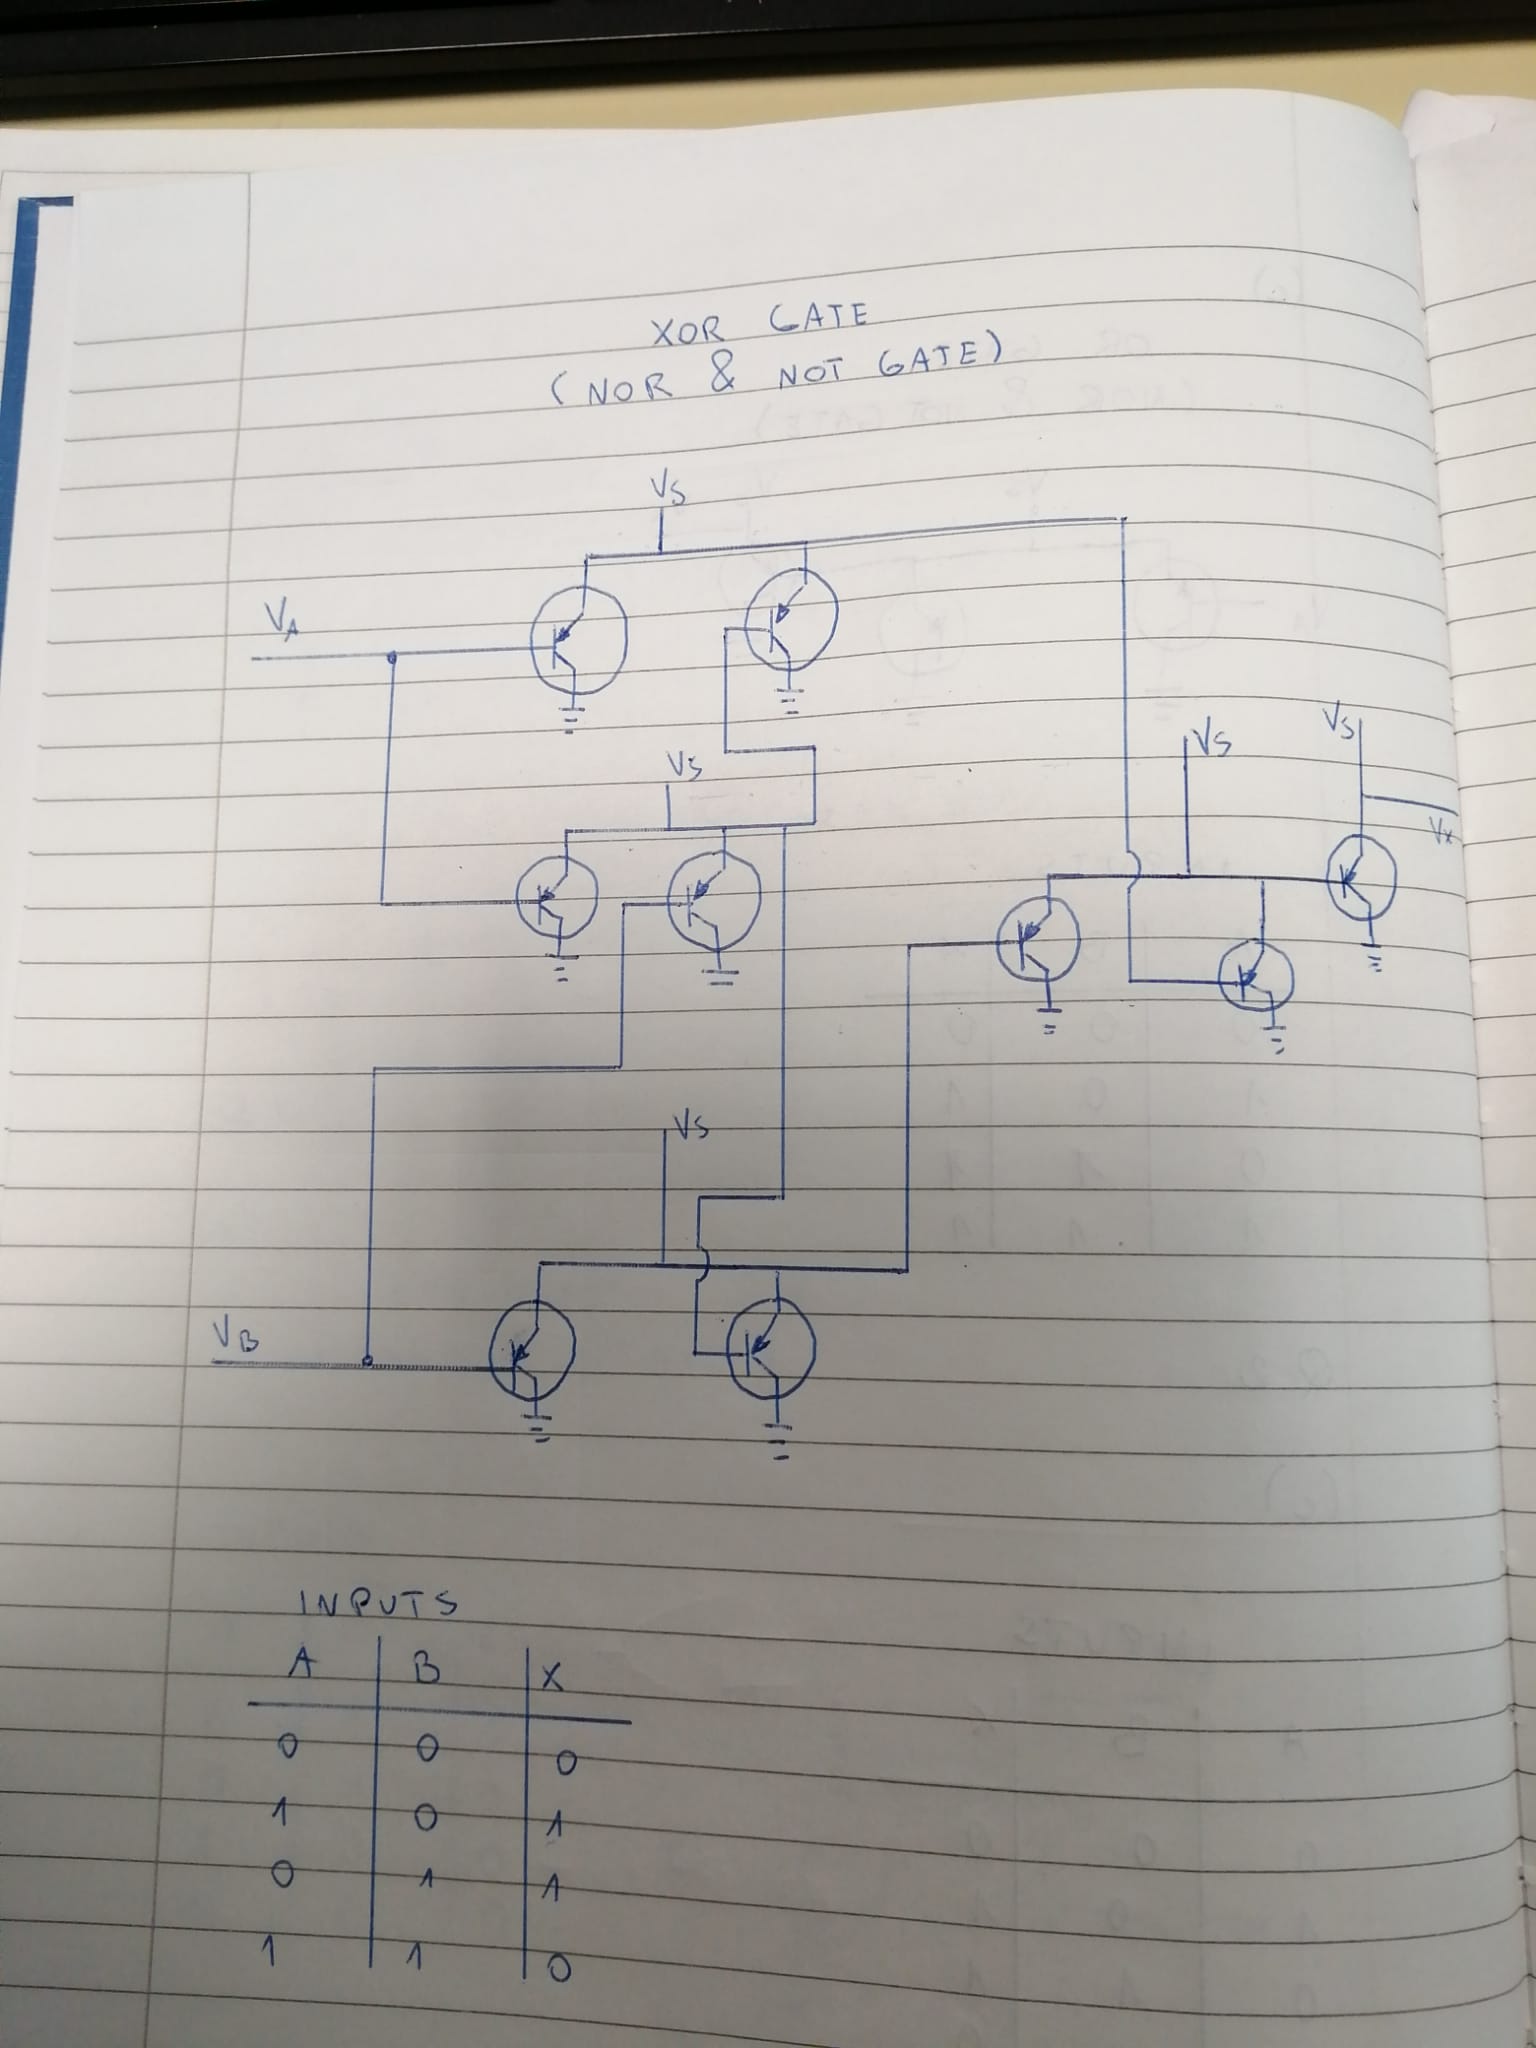 XOR GATE
(NOR & NOT GATE)
VS
VA
VS
VS
VS
VX
VS
VB
INPUTS
A B X
0 0 0
1 0 1
0 1 1
1 1 0